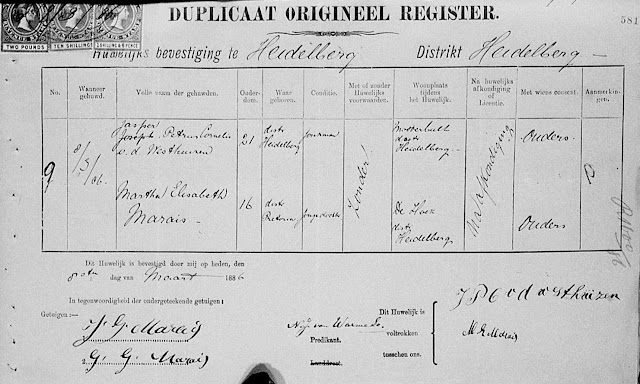 DUPLICAAT ORIGINEEL REGISTER.
581
TWO POUNDS TEN SHILLINGS
Huwelijks bevestiging te Heidelberg Distrikt Heidelberg
No. Wanneer gehuwd. Volle naam der gehuwden. Ouderdom. Waar geboren. Conditie. Met of zonder Huwelijks voorwaarden. Woonplaats tijdens het Huwelijk. Na huwelijks afkondiging of Licentie. Met wiens consent. Aanmerkingen.
9
8/3/86.
Jasper
Joseph Petrus Cornelis
v. d. Westhuizen
21
distr
Heidelberg
Jonkman
Zonder
distr
Heidelberg
Na afkondiging
Ouders
Martha Elisabeth
Marais
16
distr
Pretoria
Jongedochter
De Hoek
distr
Heidelberg
Ouders
Dit Huwelijk is bevestigd door mij op heden, den
8ste dag van Maart 1886
In tegenwoordigheid der ondergeteekende getuigen:
Getuigen:—
1. G Marais
2. G. G. Marais
van Warmelo
Predikant.
Landdrost.
Dit Huwelijk is
voltrokken
tusschen ons.
M E Marais